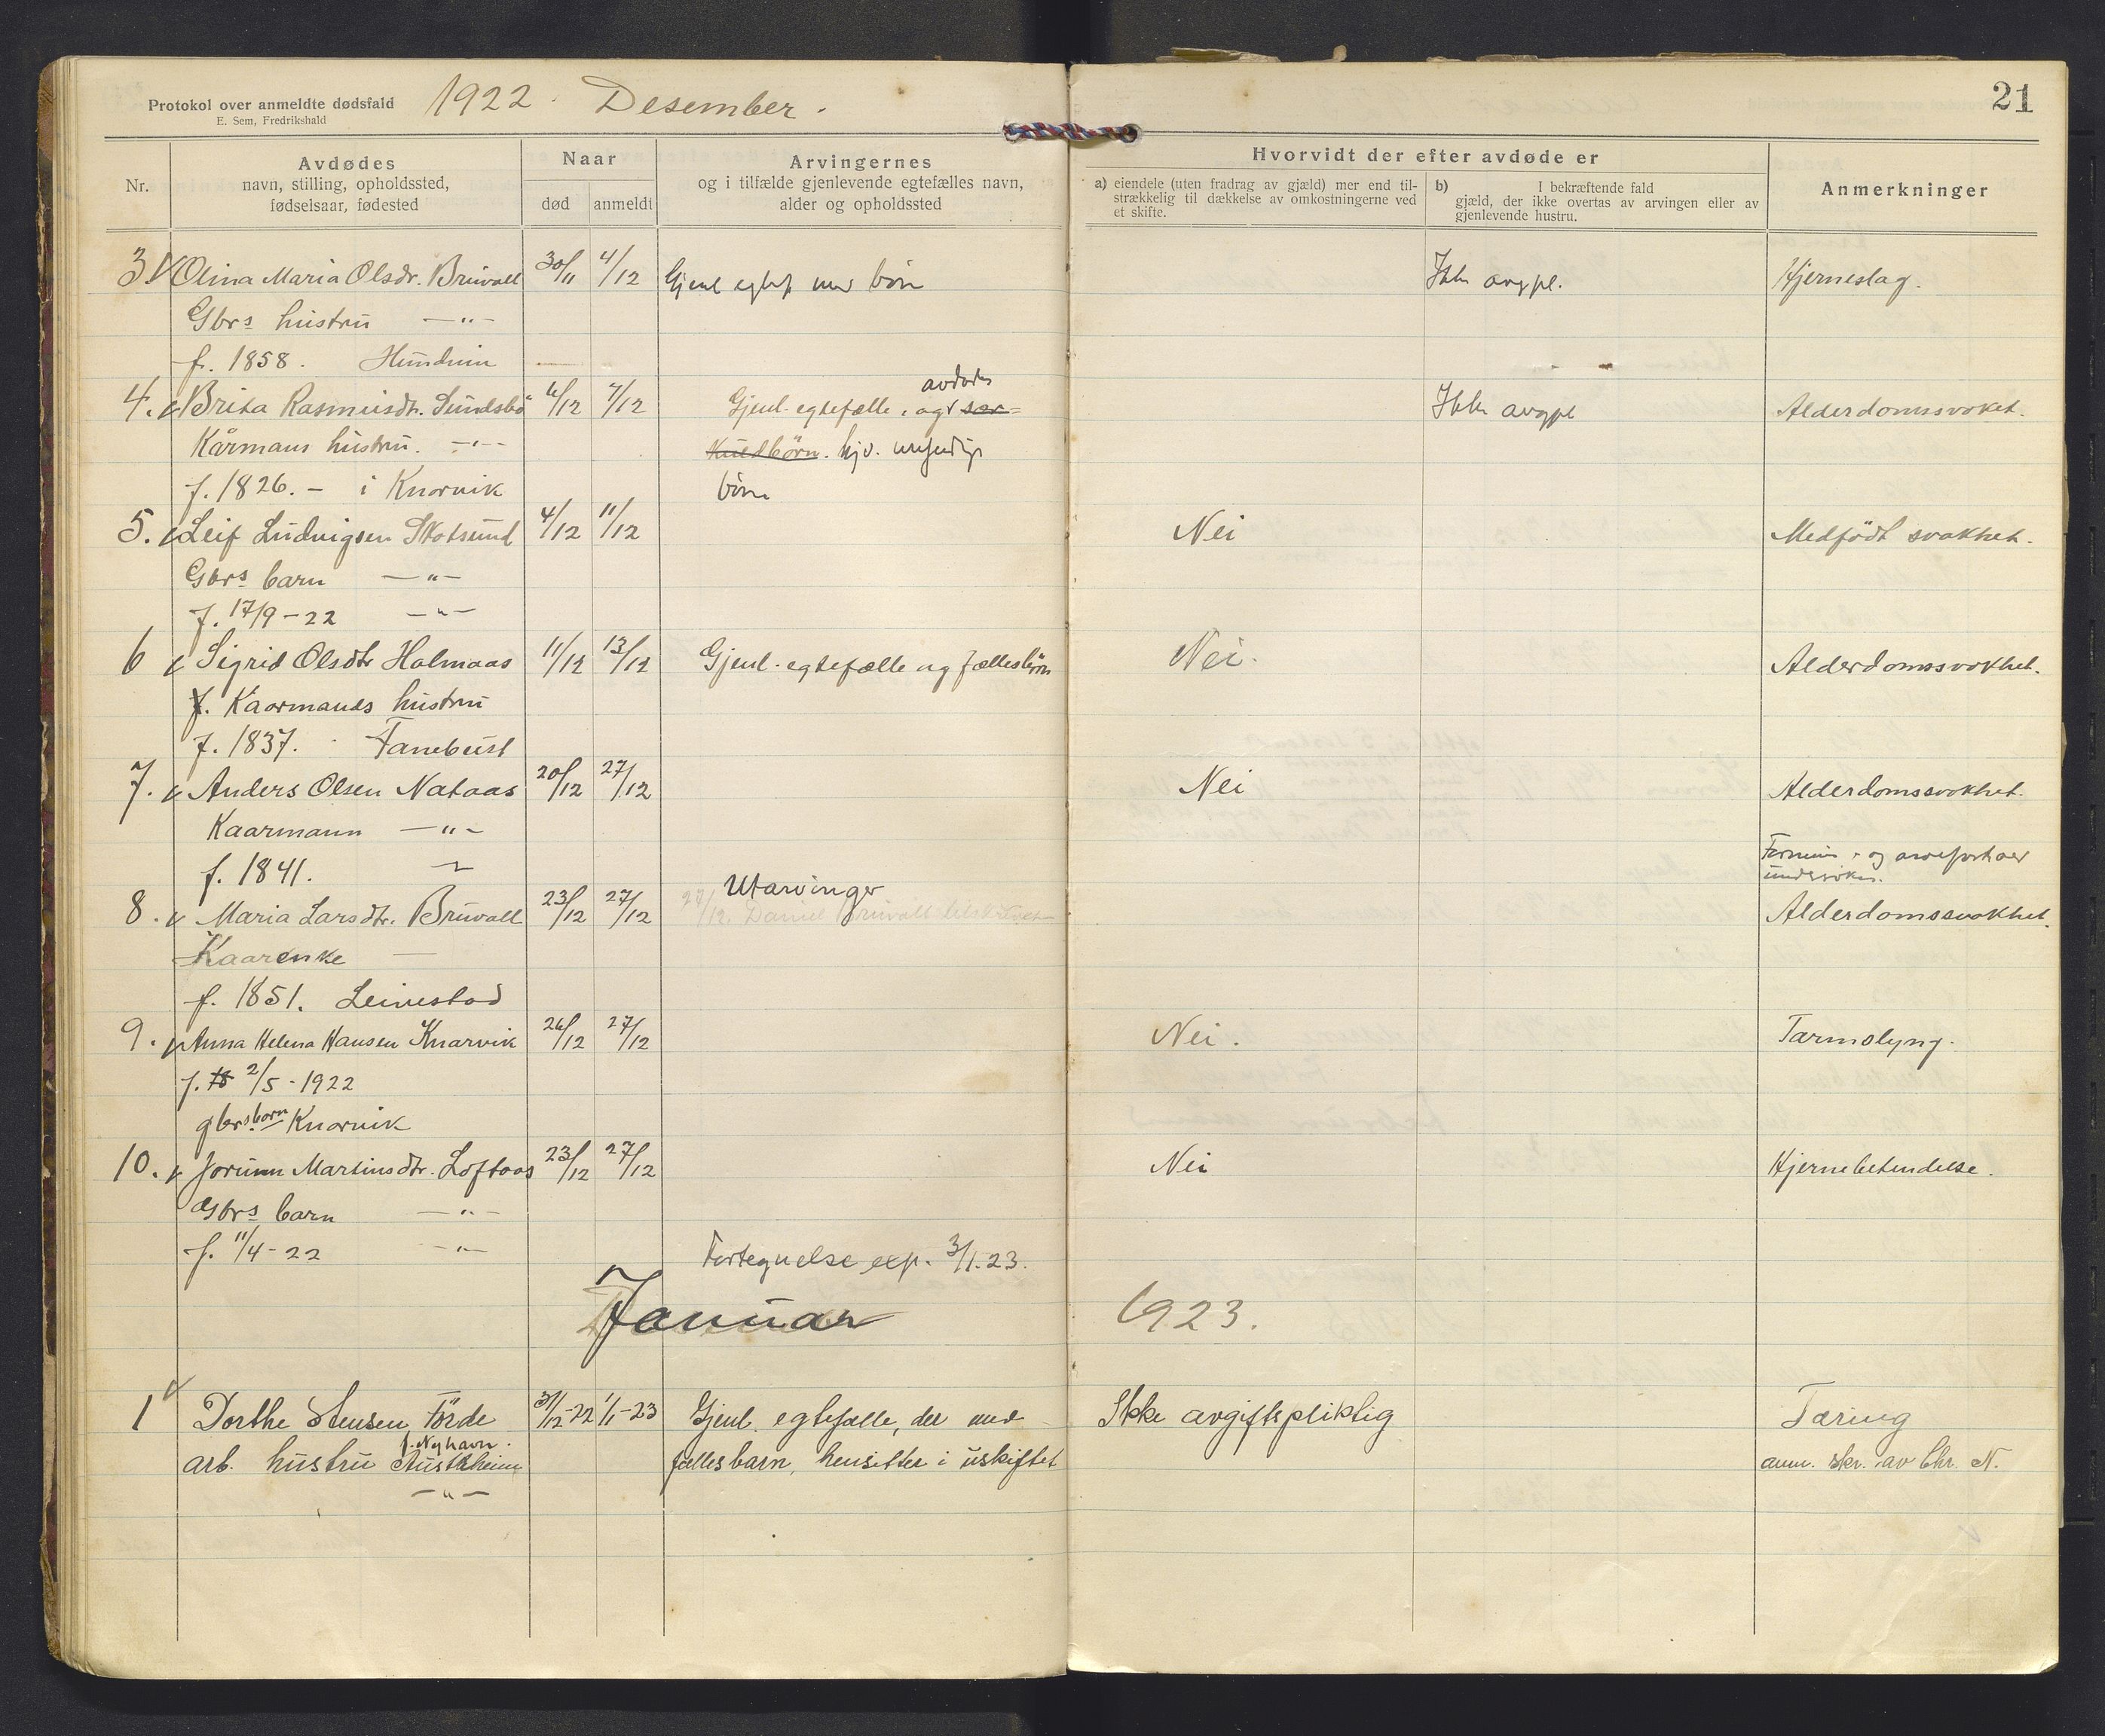 Protokol over anmeldte dødsfald
E. Sem, Fredrikshald
1922. Desember.
21
Nr.
Avdødes
navn, stilling, opholdssted,
fødselsaar, fødested
Naar
død
anmeldt
Arvingernes
og i tilfælde gjenlevende egtefælles navn,
alder og opholdssted
Hvorvidt der efter avdøde er
a) eiendele (uten fradrag av gjæld) mer end til-
strækkelig til dækkelse av omkostningerne ved
et skifte.
b) I bekræftende fald
gjæld, der ikke overtas av arvingen eller av
gjenlevende hustru.
Anmerkninger
3. Olina Maria Olsdr. Bruvoll 30/11 4/12 Gjenl egtef med börn Ikke avgpl. Hjerneslag.
Gbrs hustru —"—
f. 1858. Hundvin
4. Brita Rasmusdtr. Sundsbö 6/12 7/12 Gjenl. egtefælle, og avdødes sær= Ikke avgpl Alderdomssvaket.
Kårmans hustru. —"— kuldbörn.
f. 1826. – i Knarvik börn
5. Leif Ludvigsen Skotsund 4/12 11/12 Nei Medfödt svakhet.
Gbrs barn —"—
f. 17/9–22 —"—
6 Sigrid Olsdtr Holmaas 11/12 13/12 Gjenl. egtefælle og fællesbörn Nei. Alderdomssvakhet.
f. Kaarmands hustru
f. 1837. Fanebust
7. Anders Olsen Nataas 20/12 27/12 Nei Alderdomssvakhet.
Kaarmann —"—
f. 1841. —"—
og undersøkes.
8. Maria Larsdtr. Bruvoll 23/12 27/12 Utarvinger Alderdomssvakhet.
27/12. Daniel Bruvoll tilskrevet
Kaarenke —
f. 1851. Leinestad
9. Anna Helena Hansen Knarvik 26/12 27/12 Nei. Tarmslyng.
f. 18 2/5 - 1922
gbrs. barn Knarvik
10. Jorunn Martinsdtr. Loftaas 23/12 27/12 Nei Hjernebetendelse.
Gbrs barn —"—
f. 11/4-22 —"—
Fortegnelse exp. 3/1.23.
Januar 1923.
1 Dorthe Stensen Förde 31/12-22 1/1-23 Gjenl. egtefælle, der med Ikke avgiftspliktig Tæring
f. Nyhavn.
arb. hustru Austrheim fællesbarn, hensitter i uskiftet anm. skr. av Chr. N.
—"—